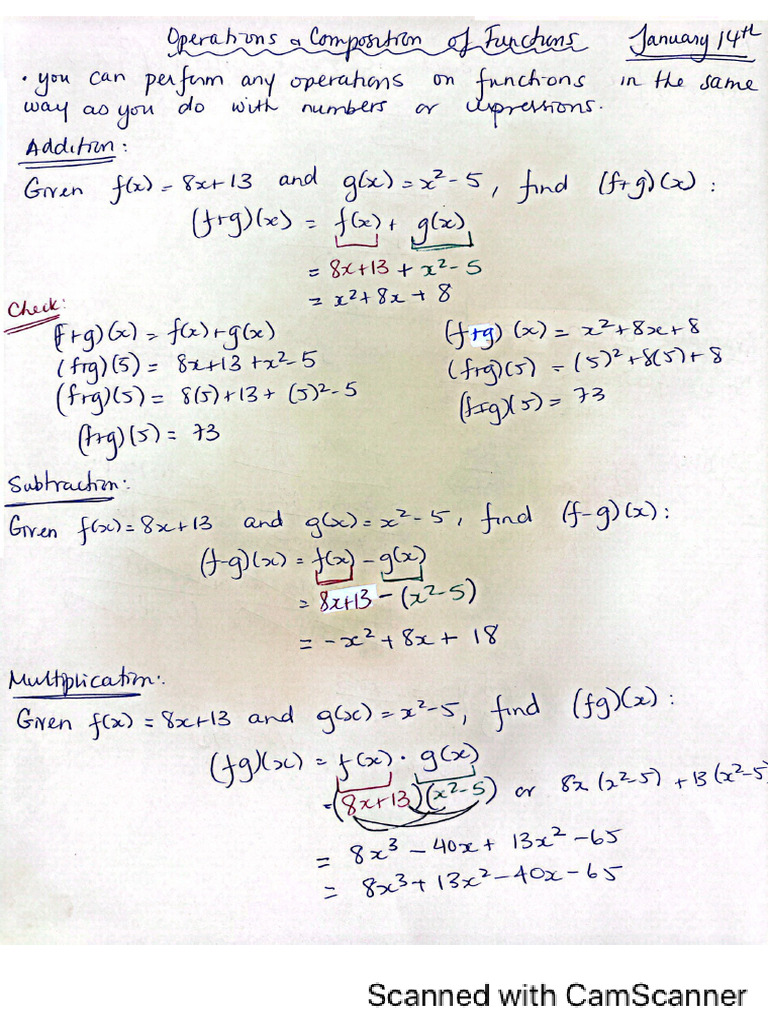 Operations & Composition of Functions January 14th
• you can perform any operations on functions in the same
way as you do with numbers or expressions.
Addition:
Given f(x) = 8x+13 and g(x) = x²-5, find (f+g)(x):
(f+g)(x) = f(x) + g(x)
= 8x+13 + x²-5
= x²+8x+8
Check:
(f+g)(x) = f(x)+g(x)
(f+g)(5) = 8x+13+x²-5
(f+g)(5) = 8(5)+13+(5)²-5
(f+g)(5) = 73
(f+g)(x) = x²+8x+8
(f+g)(5) = (5)²+8(5)+8
(f+g)(5) = 73
Subtraction:
Given f(x)=8x+13 and g(x)=x²-5, find (f-g)(x):
(f-g)(x) = f(x) - g(x)
= 8x+13 - (x²-5)
= -x²+8x+18
Multiplication:
Given f(x) = 8x+13 and g(x) = x²-5, find (fg)(x):
(fg)(x) = f(x) · g(x)
=(8x+13)(x²-5) or 8x(x²-5) + 13(x²-5)
= 8x³ - 40x + 13x² - 65
= 8x³ + 13x² - 40x - 65
Scanned with CamScanner